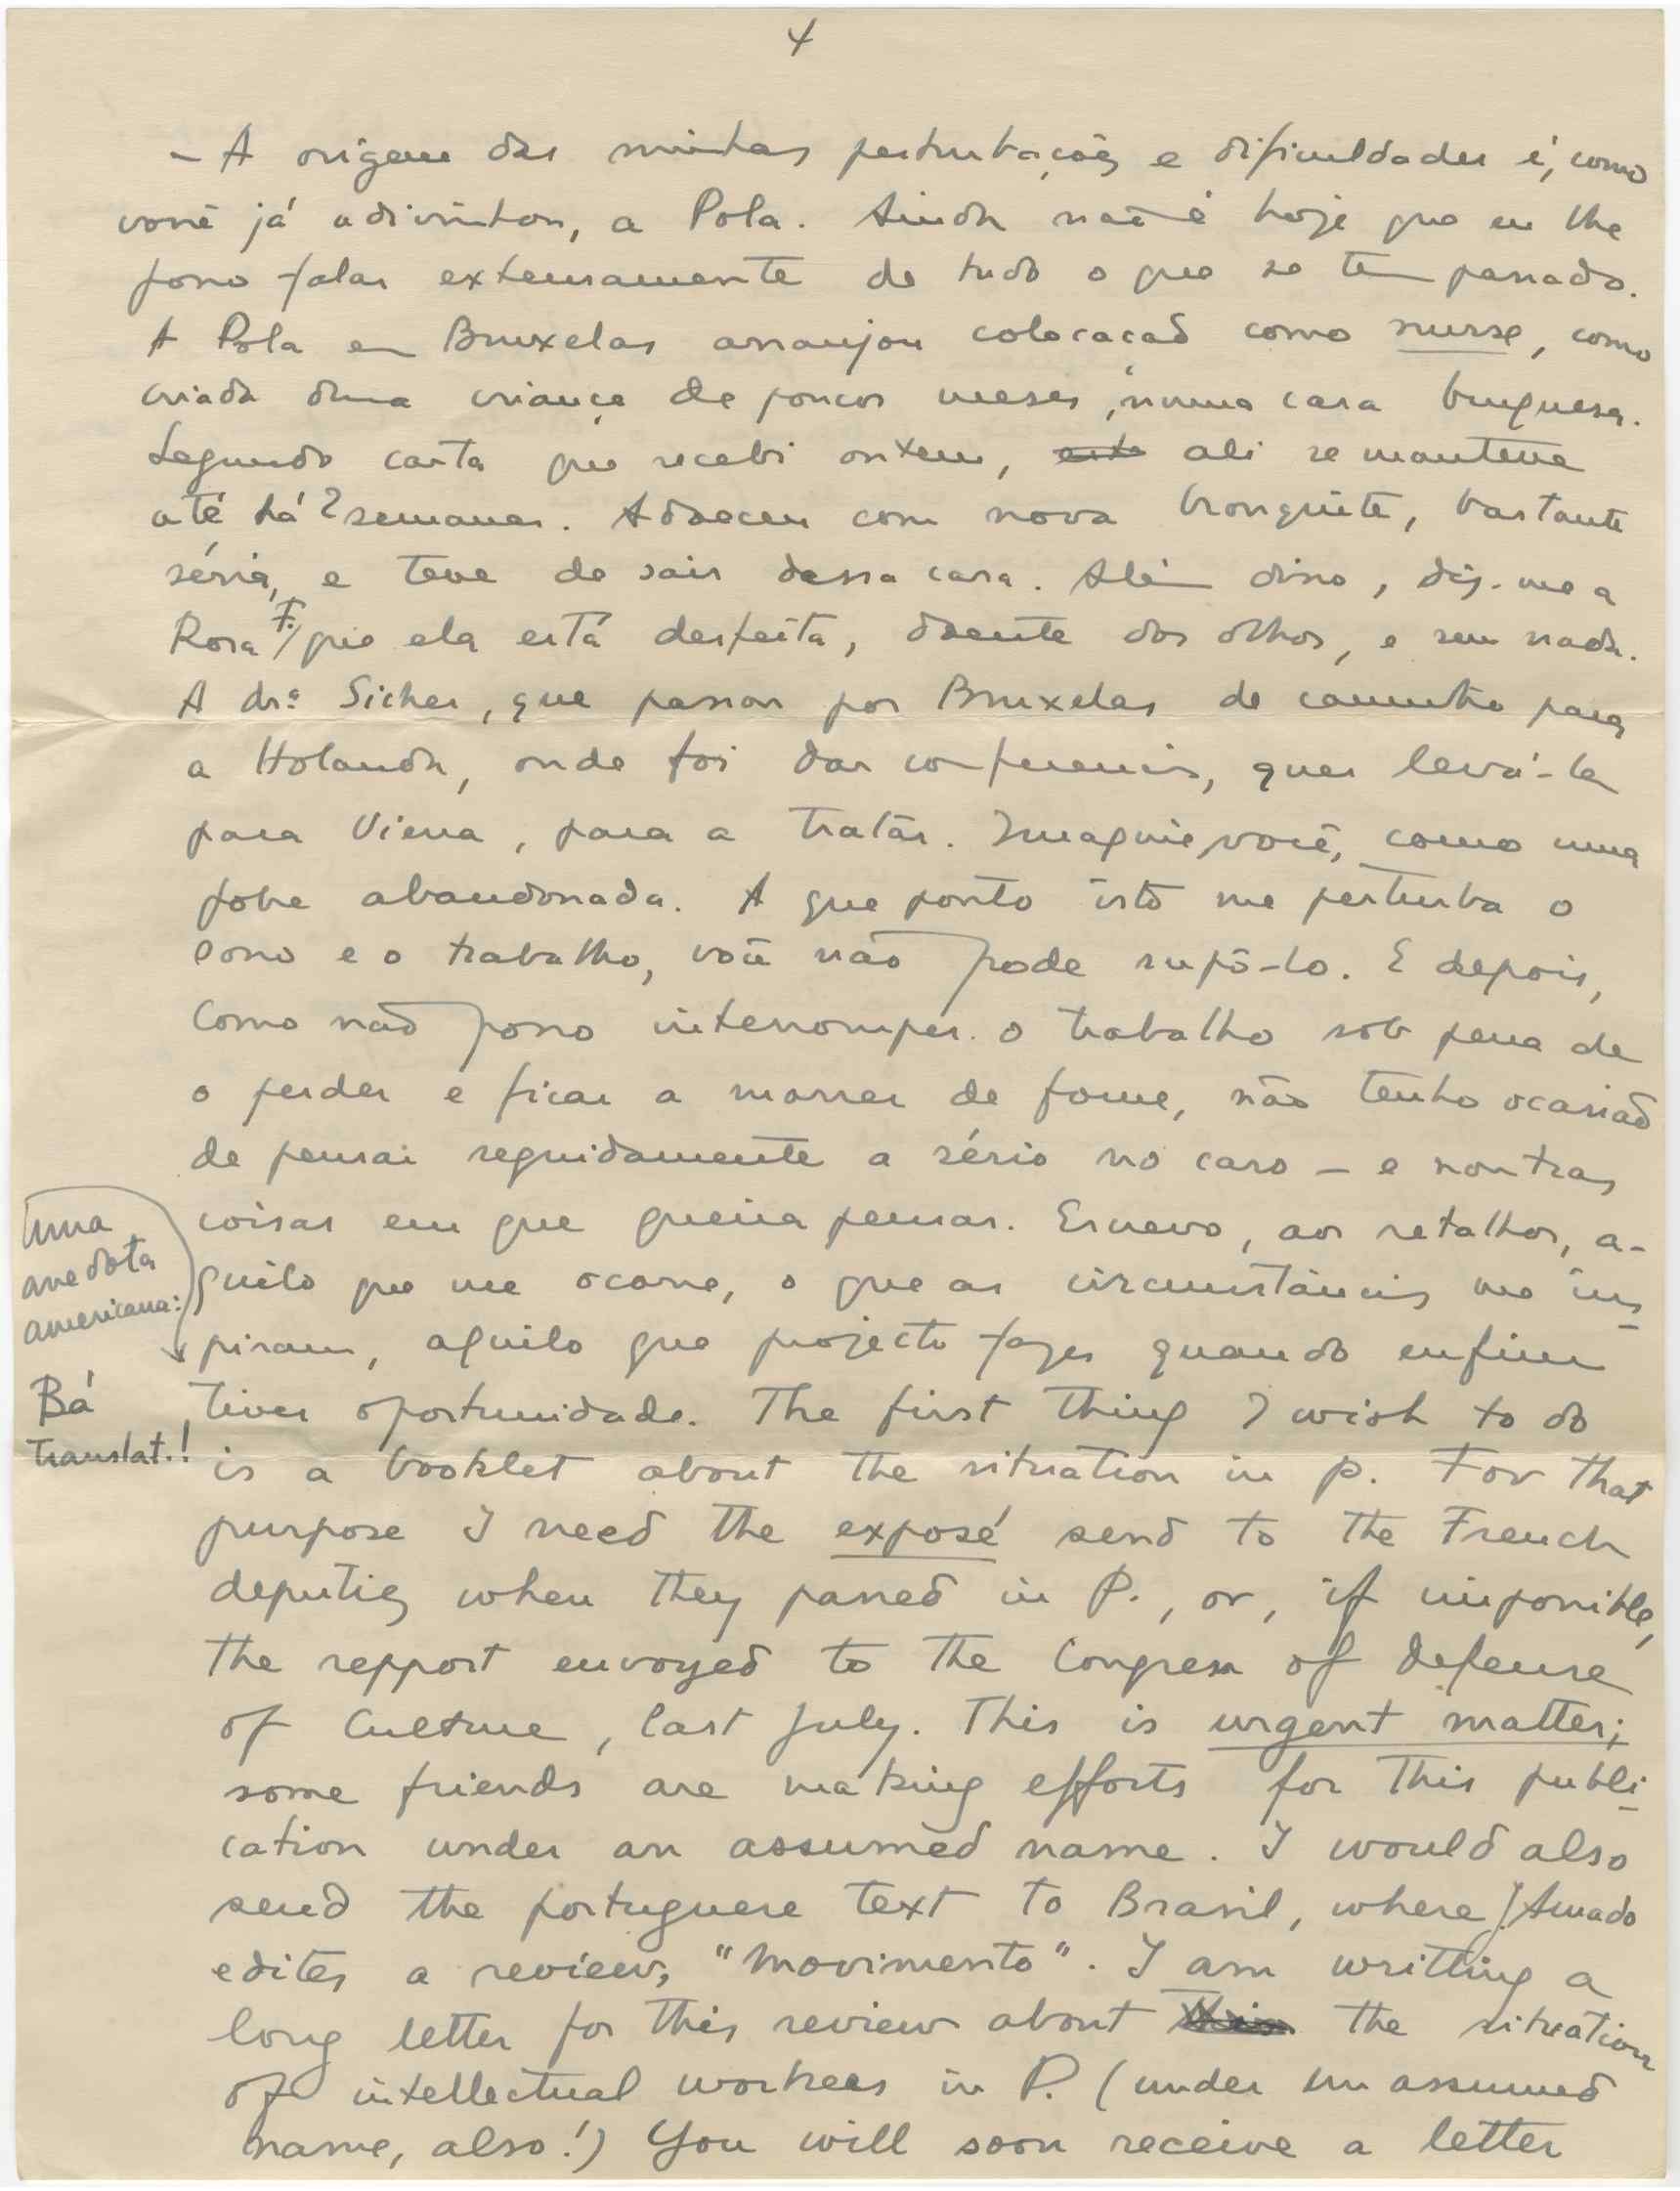 4
– A origem das minhas perturbações e dificuldades é, como
você já adivinhou, a Pola. Ainda não é hoje que eu lhe
posso falar extensamente de tudo o que se tem passado.
A Pola em Bruxelas arranjou colocação como nurse, como
criada duma criança de poucos meses, numa casa burguesa.
Segundo carta que recebi ontem, ali se manteve
até há 2 semanas. Adoeceu com nova bronquite, bastante
séria, e teve de sair dessa casa. Além disso, diz-me a
Rosa F. que ela está desfeita, doente dos olhos, e sem nada.
A dr.ª Sicher, que passou por Bruxelas de caminho para
a Holanda, onde foi dar conferencias, quer levá-la
para Viena, para a tratar. Imagine você, como uma
pobre abandonada. A que ponto isto me perturba o
sono e o trabalho, você não pode supô-lo. E depois,
como não posso interromper o trabalho sob pena de
o perder e ficar a morrer de fome, não tenho ocasião
de pensar seguidamente a sério no caso – e noutras
coisas em que queira pensar. Escrevo, aos retalhos, a-
quilo que me ocorre, o que as circunstâncias me ins-
piram, aquilo que projecto fazer quando enfim
tiver oportunidade. The first thing I wish to do
is a booklet about the situation in p. For that
purpose I need the exposé send to the French
deputies when they passed in P., or, if impossible,
the repport envoyed to the Congress of Defense
of Culture, last July. This is urgent matter;
some friends are making efforts for this publi-
cation under an assumed name. I would also
send the portuguese text to Brasil, where J. Amado
edites a review, "Movimento". I am writting a
long letter for this review about the situation
of intellectual workers in P. (under un assumed
name, also!) You will soon receive a letter
Uma
anedota
americana:
Bá
translat.!